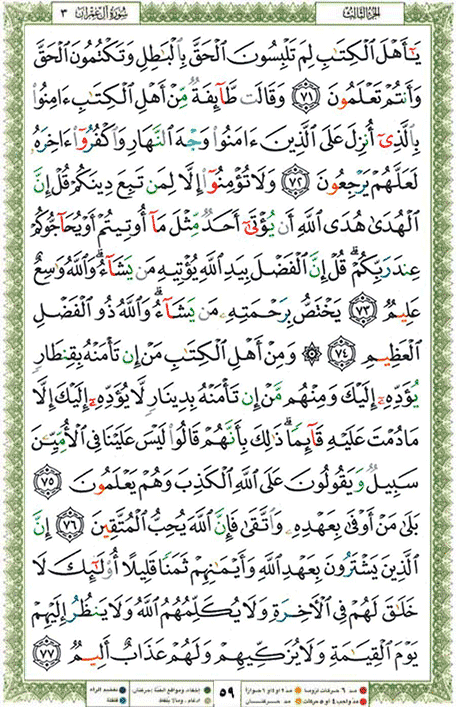 الجزء الثالث سورة آل عمران ٣
يَـٰٓأَهۡلَ ٱلۡكِتَـٰبِ لِمَ تَلۡبِسُونَ ٱلۡحَقَّ بِٱلۡبَـٰطِلِ وَتَكۡتُمُونَ ٱلۡحَقَّ
وَأَنتُمۡ تَعۡلَمُونَ ٧١ وَقَالَت طَّآئِفَةٞ مِّنۡ أَهۡلِ ٱلۡكِتَـٰبِ ءَامِنُواْ
بِٱلَّذِيٓ أُنزِلَ عَلَى ٱلَّذِينَ ءَامَنُواْ وَجۡهَ ٱلنَّهَارِ وَٱكۡفُرُوٓاْ ءَاخِرَهُۥ
لَعَلَّهُمۡ يَرۡجِعُونَ ٧٢ وَلَا تُؤۡمِنُوٓاْ إِلَّا لِمَن تَبِعَ دِينَكُمۡ قُلۡ إِنَّ
ٱلۡهُدَىٰ هُدَى ٱللَّهِ أَن يُؤۡتَىٰٓ أَحَدٞ مِّثۡلَ مَآ أُوتِيتُمۡ أَوۡ يُحَآجُّوكُمۡ
عِندَ رَبِّكُمۡۗ قُلۡ إِنَّ ٱلۡفَضۡلَ بِيَدِ ٱللَّهِ يُؤۡتِيهِ مَن يَشَآءُۗ وَٱللَّهُ وَٰسِعٌ
عَلِيمٞ ٧٣ يَخۡتَصُّ بِرَحۡمَتِهِۦ مَن يَشَآءُۗ وَٱللَّهُ ذُو ٱلۡفَضۡلِ
ٱلۡعَظِيمِ ٧٤ ۞ وَمِنۡ أَهۡلِ ٱلۡكِتَـٰبِ مَنۡ إِن تَأۡمَنۡهُ بِقِنطَارٖ
يُؤَدِّهِۦٓ إِلَيۡكَ وَمِنۡهُم مَّنۡ إِن تَأۡمَنۡهُ بِدِينَارٖ لَّا يُؤَدِّهِۦٓ إِلَيۡكَ إِلَّا
مَا دُمۡتَ عَلَيۡهِ قَآئِمٗاۗ ذَٰلِكَ بِأَنَّهُمۡ قَالُواْ لَيۡسَ عَلَيۡنَا فِي ٱلۡأُمِّيِّـۧنَ
سَبِيلٞ وَيَقُولُونَ عَلَى ٱللَّهِ ٱلۡكَذِبَ وَهُمۡ يَعۡلَمُونَ ٧٥
بَلَىٰ مَنۡ أَوۡفَىٰ بِعَهۡدِهِۦ وَٱتَّقَىٰ فَإِنَّ ٱللَّهَ يُحِبُّ ٱلۡمُتَّقِينَ ٧٦ إِنَّ
ٱلَّذِينَ يَشۡتَرُونَ بِعَهۡدِ ٱللَّهِ وَأَيۡمَـٰنِهِمۡ ثَمَنٗا قَلِيلًا أُوْلَـٰٓئِكَ لَا
خَلَـٰقَ لَهُمۡ فِي ٱلۡأٓخِرَةِ وَلَا يُكَلِّمُهُمُ ٱللَّهُ وَلَا يَنظُرُ إِلَيۡهِمۡ
يَوۡمَ ٱلۡقِيَـٰمَةِ وَلَا يُزَكِّيهِمۡ وَلَهُمۡ عَذَابٌ أَلِيمٞ ٧٧
مد ٦ حركات لزوماً مد ٢ او ٤ او ٦ جوازاً
مد واجب ٤ او ٥ حركات مد حركتان
٥٩
إخفاء، ومواقع الغنة (حركتان)
ادغام، وما لا يلفظ
تفخيم الراء
قلقلة